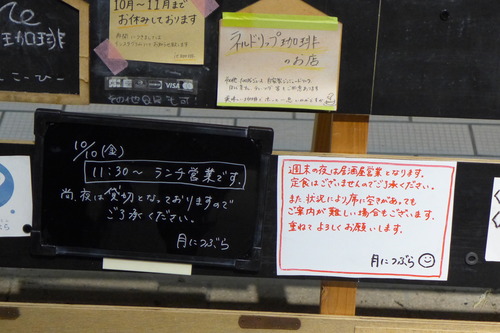 珈琲
こーひー
10月~11月まで
お休みしております
VISA
その他食品も可
ネルドリップ珈琲
のお店
10/10(金)
11:30~ ランチ営業です.
尚、夜は貸切となっておりますので
ご了承ください.
月につぶら
週末の夜は居酒屋営業となります.
定食はございませんのでご了承ください.
また 状況により席に空きがあっても
ご案内が難しい場合もございます.
重ねてよろしくお願いします.
月につぶら